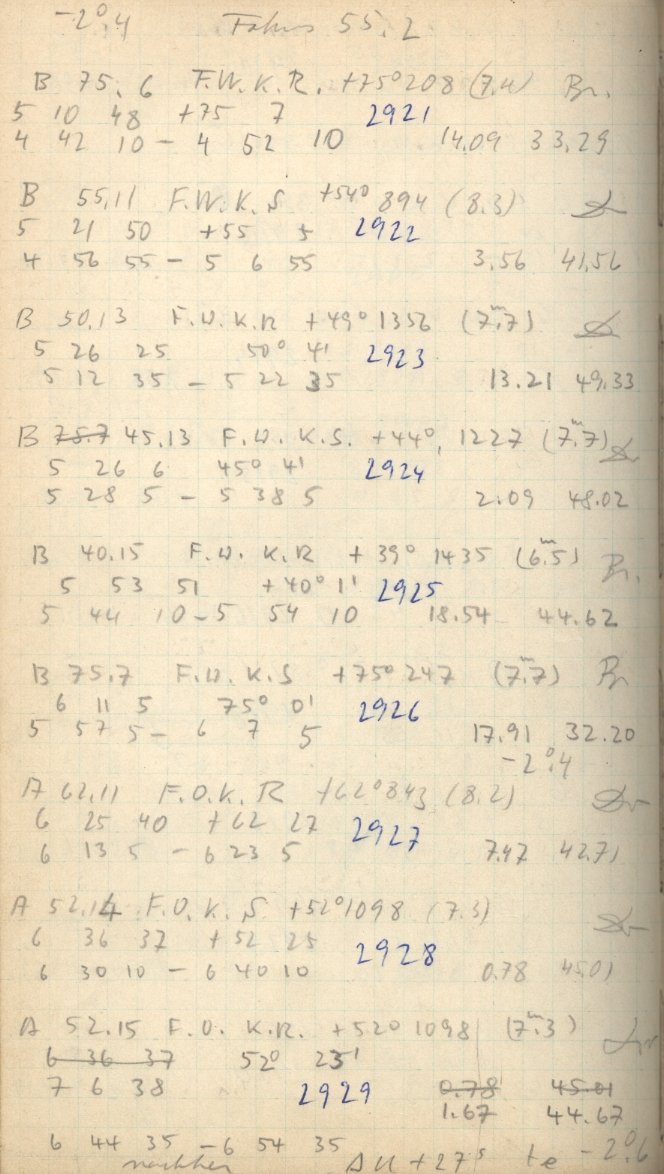 -2°.4 55.2
B 75.6 F.W. K.R. +75°208 (7.4) Br.
5 10 48 +75 7 2921
4 42 10 - 4 52 10 14.09 33.29
B 55.11 F.W. K.S +54° 894 (8.3)
5 21 50 +55 5 2922
4 56 55 - 5 6 55 3.56 41.56
B 50.13 F.W. K.R +49° 1356 (7.m7)
5 26 25 50° 4' 2923
5 12 35 - 5 22 35 13.21 49.33
B 45.13 F.W. K.S. +44°, 1227 (7.m7)
5 26 6 45° 4' 2924
5 28 5 - 5 38 5 2.09 48.02
B 40.15 F.W. K.R + 39° 1435 (6.m5) Br.
5 53 51 +40° 1' 2925
5 44 10 - 5 54 10 18.54 44.62
B 75.7 F.W. K.S +75° 247 (7.m7) Br
6 11 5 75° 0' 2926
5 57 5 - 6 7 5 17.91 32.20
-2°.4
A 62.11 F.O. K. R +62°843 (8.2)
6 25 40 +62 27 2927
6 13 5 - 6 23 5 7.47 42.71
A 52.14 F.O. K. S +52°1098 (7.3)
6 36 37 +52 25 2928
6 30 10 - 6 40 10 0.78 45.01
A 52.15 F.O. K.R. +52° 1098 (7.m3)
6 36 37 52° 23'
7 6 38 2929 0.78 45.01
1.67 44.67
6 44 35 - 6 54 35
nachher ΔU +27s te -2°.6